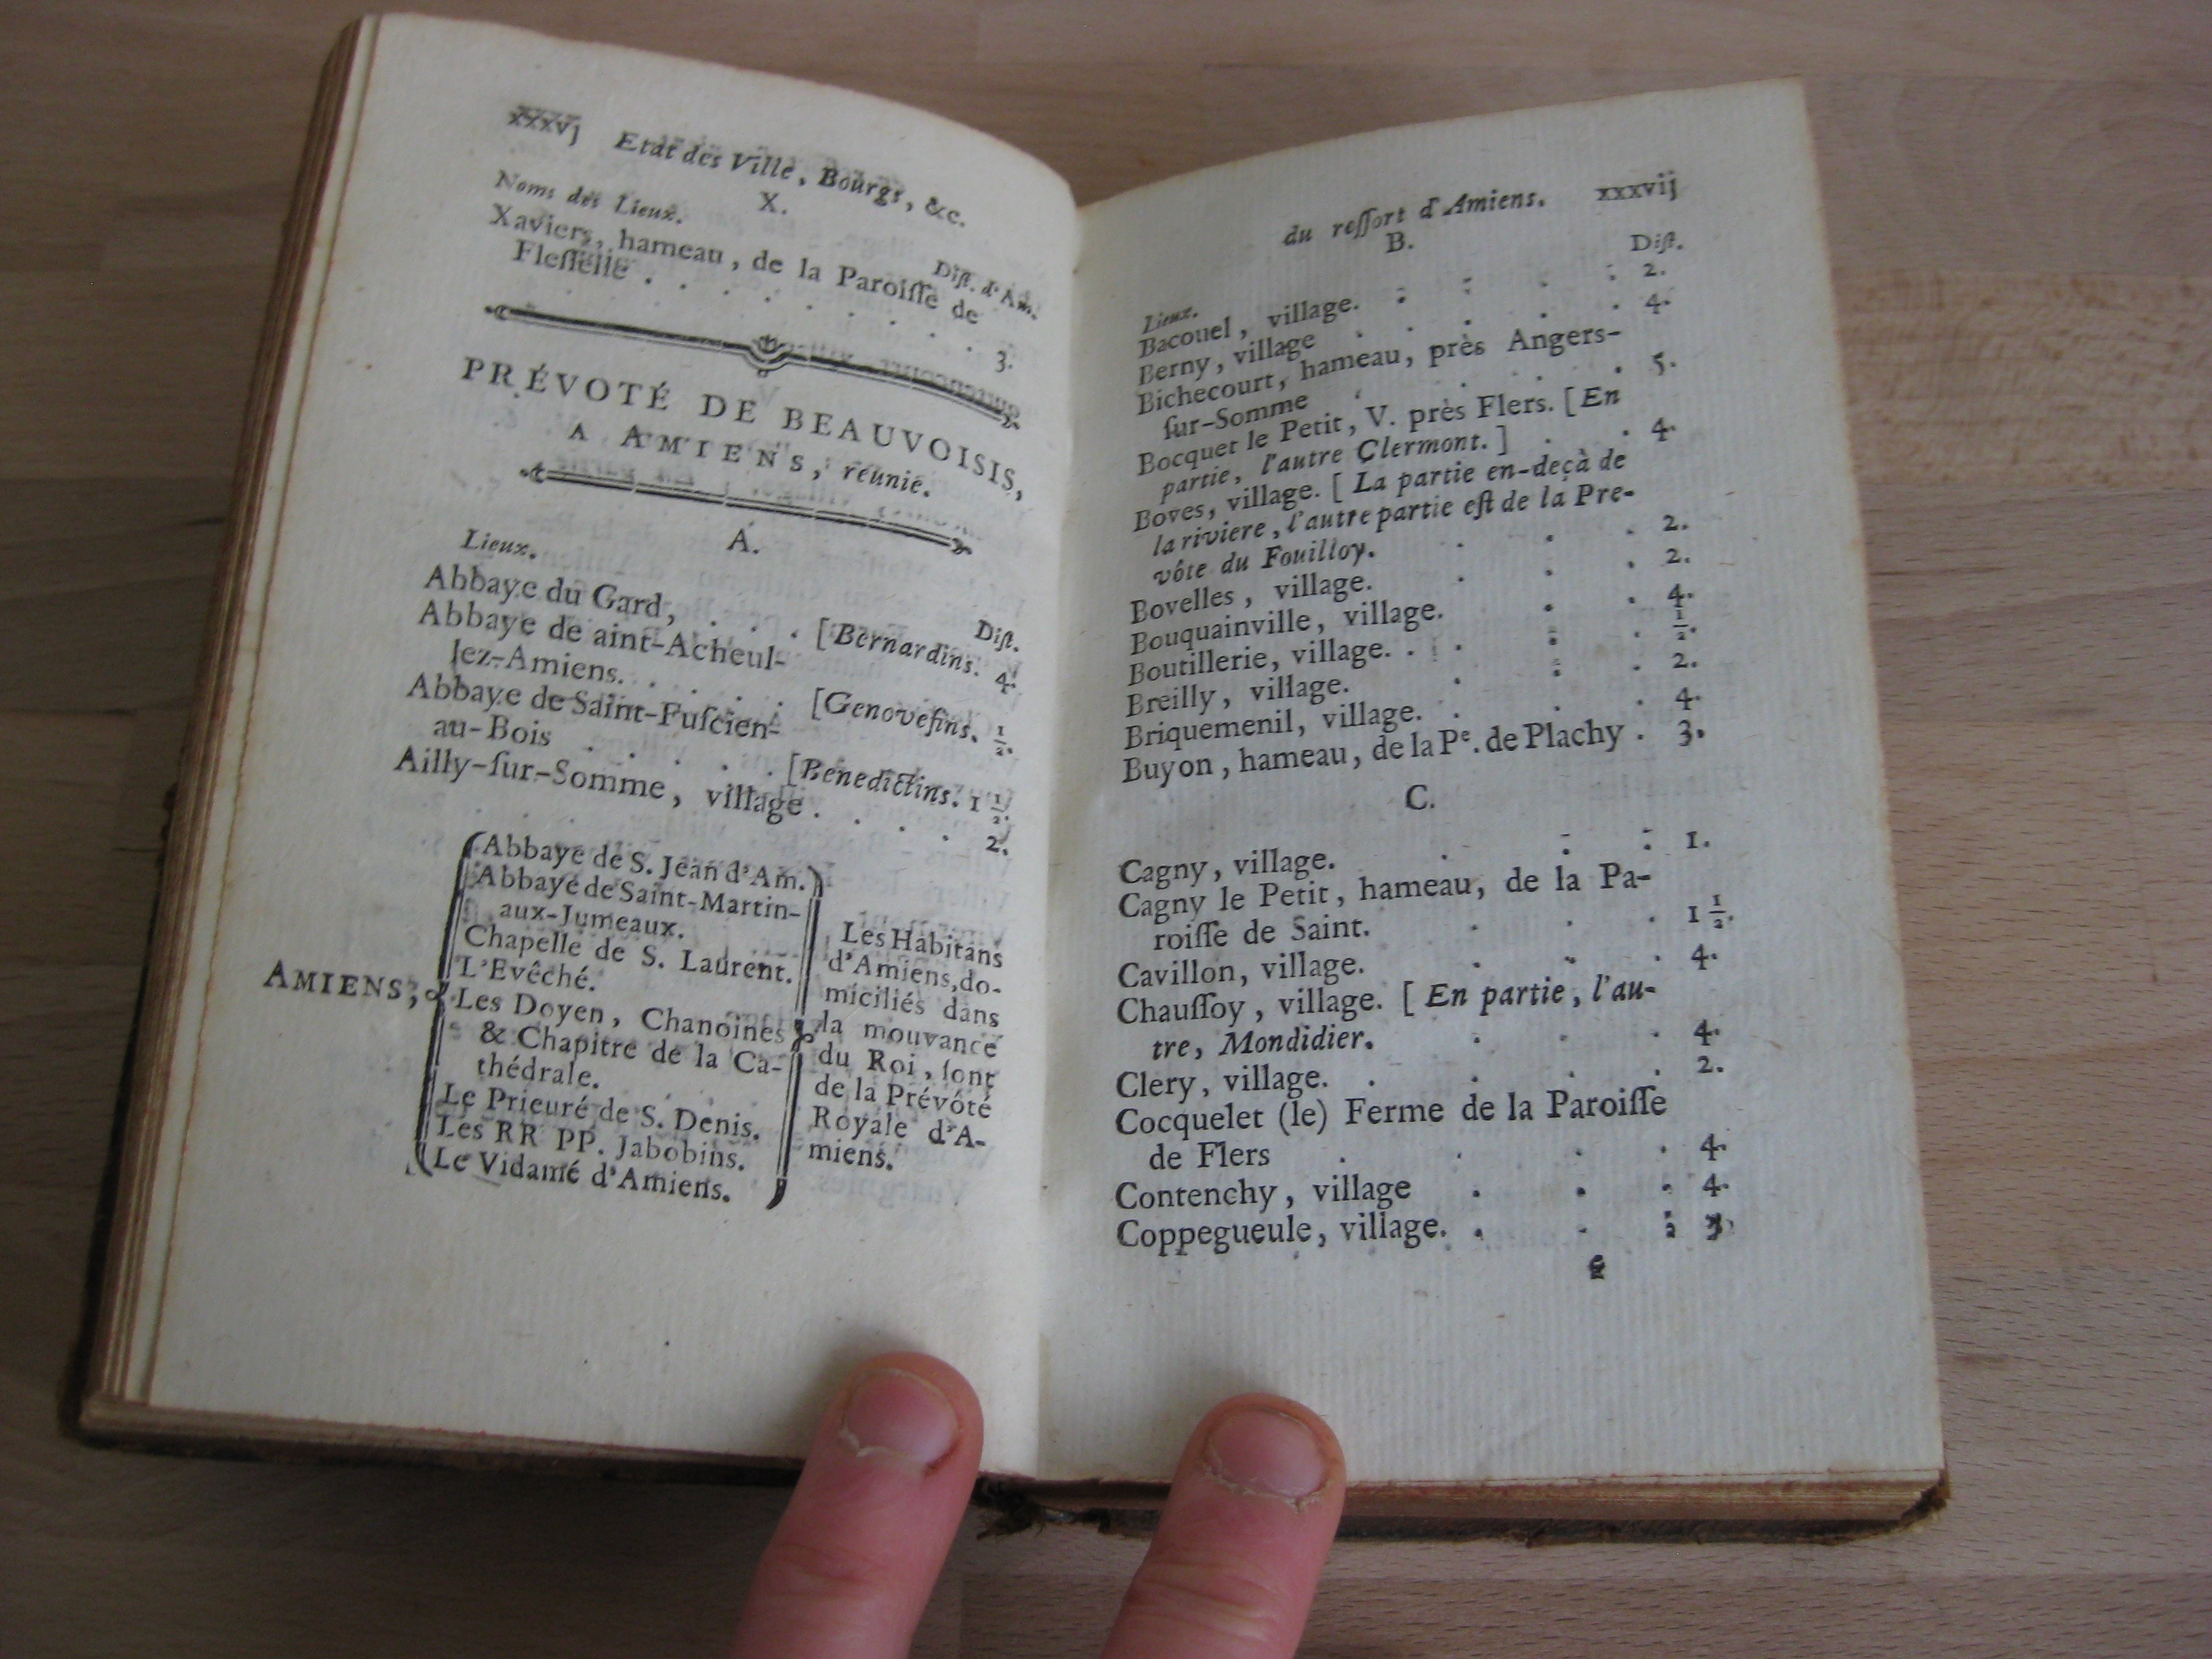 xxxvj Etat des Ville, Bourgs, &c.
X.
Noms des Lieux. Diſt. d'Am.
Xaviers, hameau, de la Paroiſſe de
Fleſſelle . . . . . . . . 3.
PRÉVOTÉ DE BEAUVOISIS,
A AMIENS, réunie.
A.
Lieux. Diſt.
Abbaye du Gard, . . . [Bernardins. 4.
Abbaye de aint-Acheul-
lez-Amiens. . . . . [Genovefins. 1/2.
Abbaye de Saint-Fuſcien-
au-Bois . . . . . [Benedictins. 1 1/2.
Ailly-ſur-Somme, village . . . . 2.
AMIENS,
Abbaye de S. Jean d'Am.
Abbaye de Saint-Martin-
aux-Jumeaux.
Chapelle de S. Laurent.
L'Evêché.
Les Doyen, Chanoines
& Chapitre de la Ca-
thédrale.
Le Prieuré de S. Denis.
Les RR PP. Jabobins.
Le Vidamé d'Amiens.
Les Habitans
d'Amiens, do-
miciliés dans
la mouvance
du Roi, ſont
de la Prévôté
Royale d'A-
miens.
du reſſort d'Amiens. xxxvij
B.
Lieux. Diſt.
Bacouel, village. . . . . 2.
Berny, village . . . . . 4.
Bichecourt, hameau, près Angers-
ſur-Somme . . . . . 5.
Bocquet le Petit, V. près Flers. [En
partie, l'autre Clermont.] . . 4.
Boves, village. [La partie en-deçà de
la riviere, l'autre partie eſt de la Pre-
vôte du Fouilloy. . . . 2.
Bovelles, village. . . . 2.
Bouquainville, village. . . 4.
Boutillerie, village. . . . . 1/2.
Breilly, village. . . . 2.
Briquemenil, village. . . . 4.
Buyon, hameau, de la Pe. de Plachy . 3.
C.
Cagny, village. . . . 1.
Cagny le Petit, hameau, de la Pa-
roiſſe de Saint. . . . 1 1/2.
Cavillon, village. . . . 4.
Chauſſoy, village. [En partie, l'au-
tre, Mondidier. . . . 4.
Clery, village. . . . . 2.
Cocquelet (le) Ferme de la Paroiſſe
de Flers . . . . 4.
Contenchy, village . . . 4.
Coppegueule, village. . . .